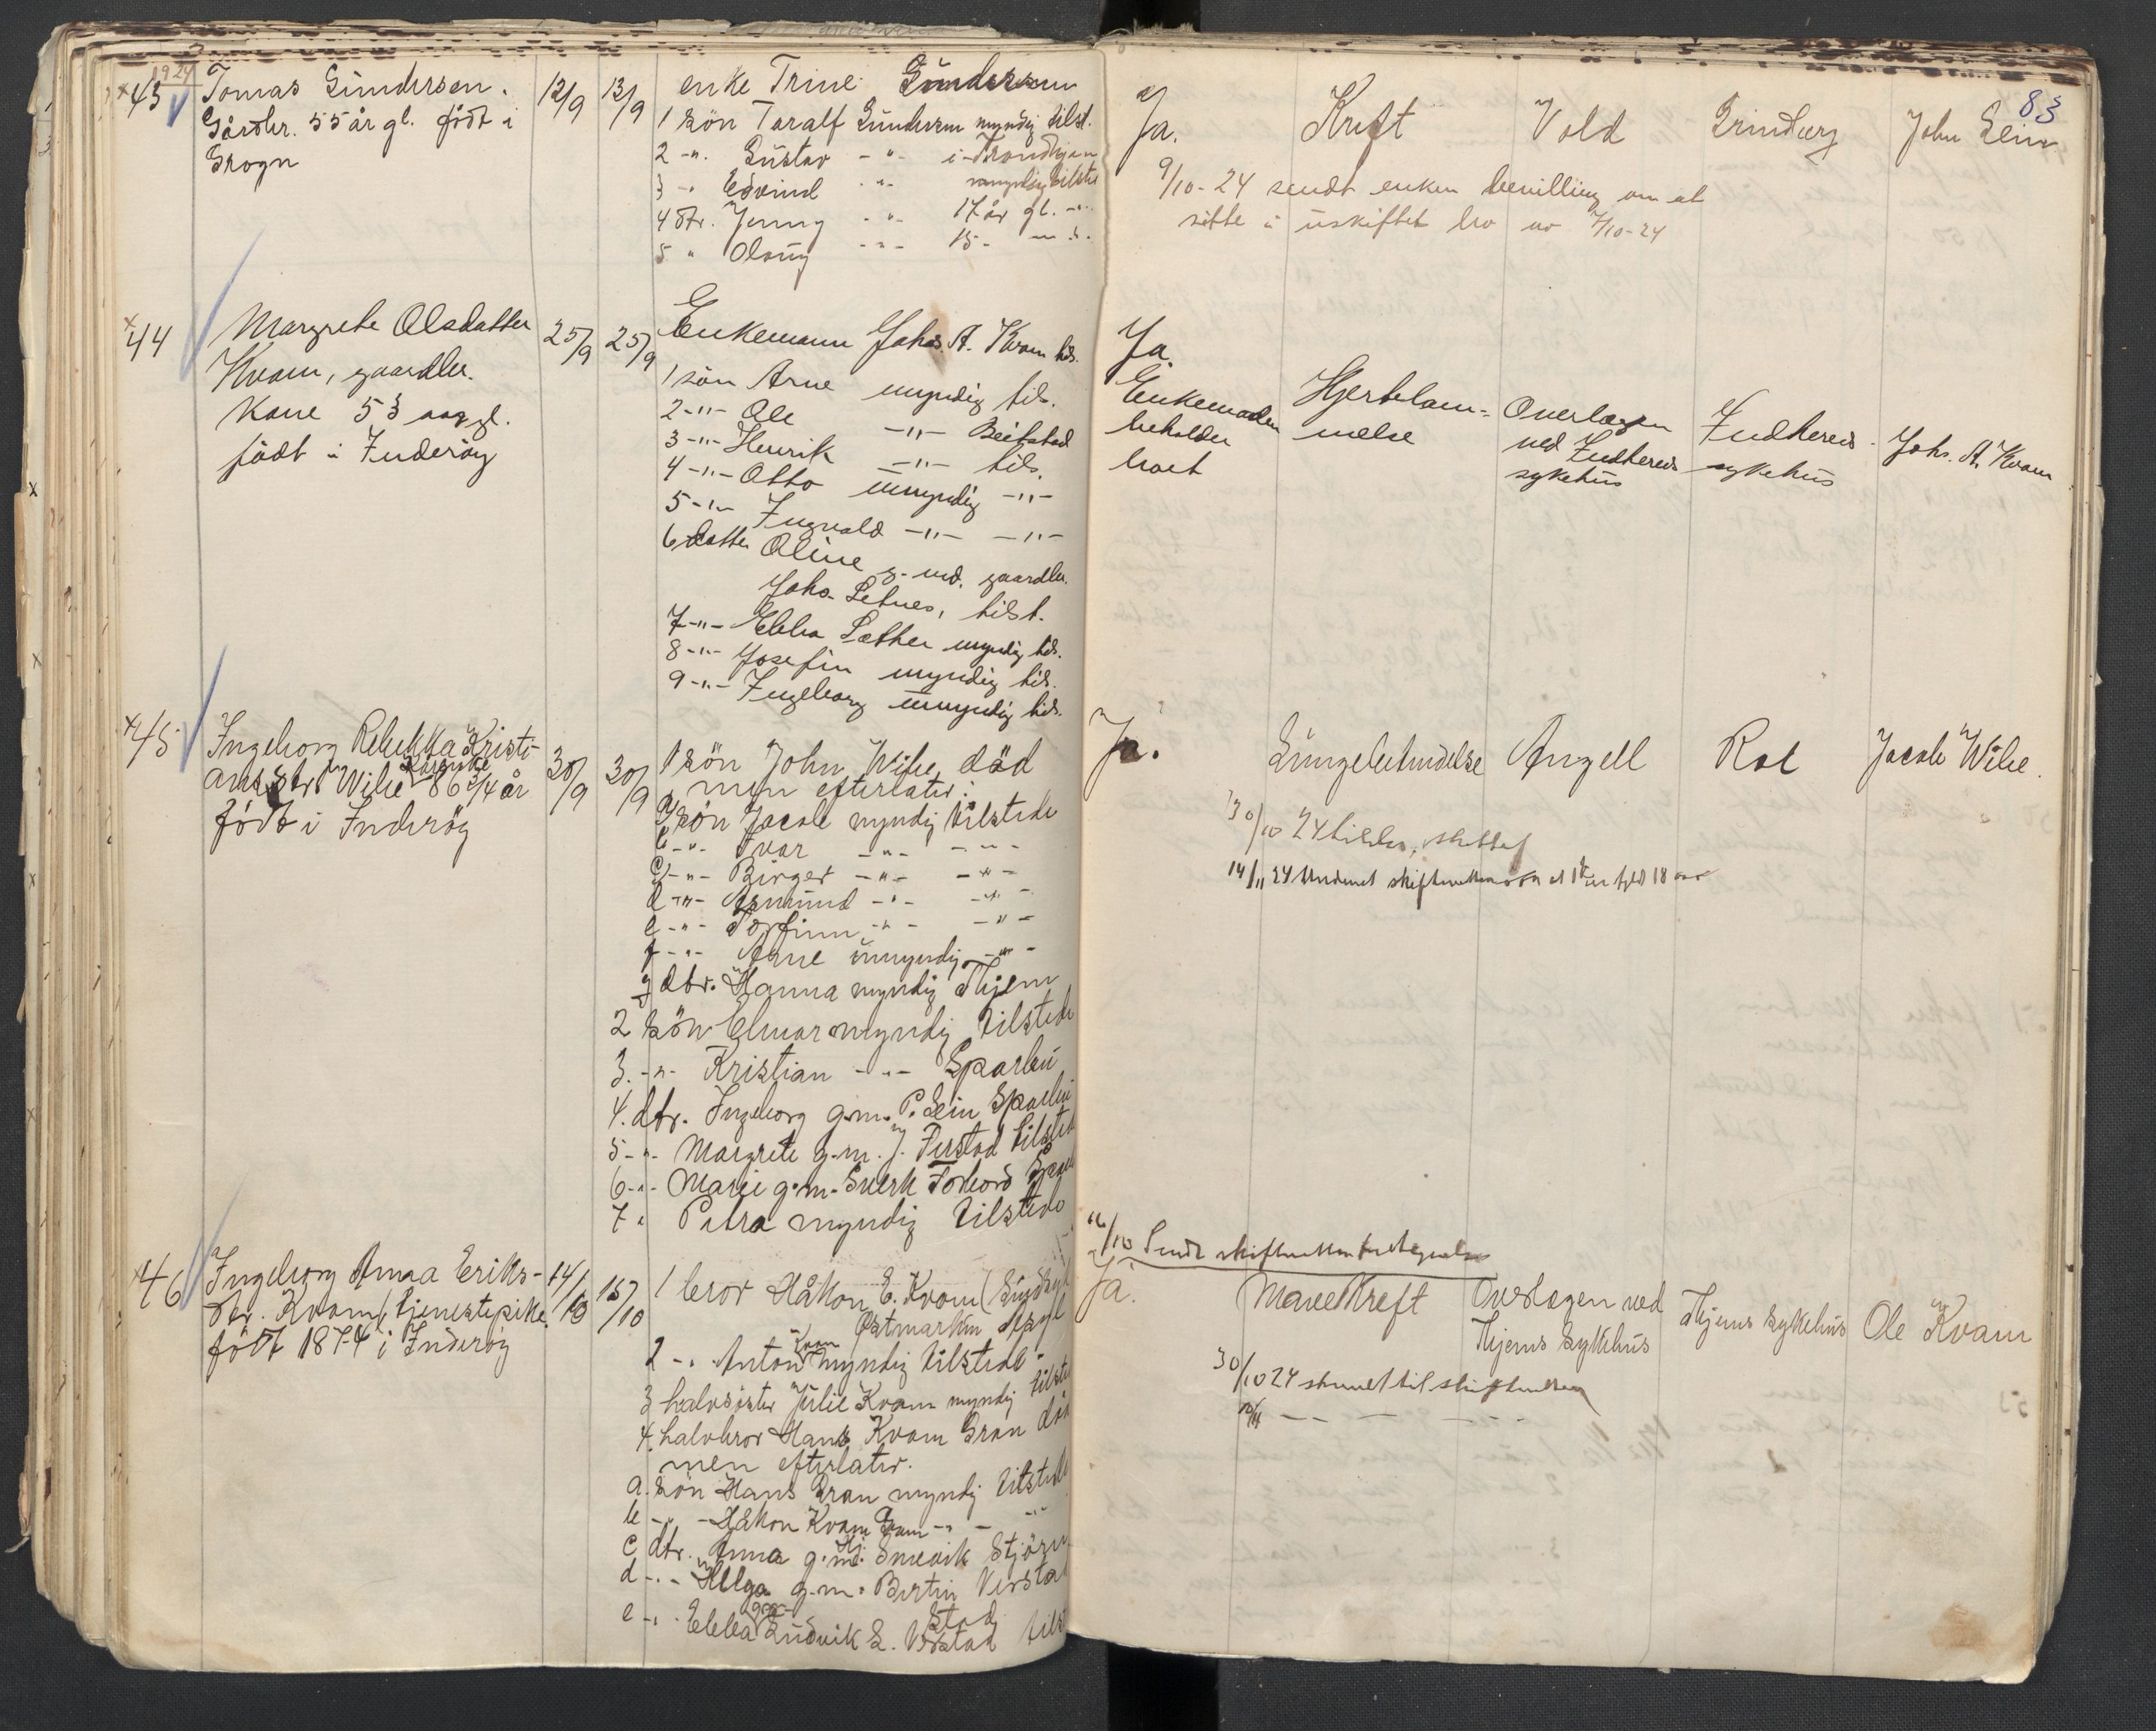 83
1924
43 Tomas Gundersen. 12/9 13/9 enke Trine Gundersen Ja. Kreft Vold Grindberg John Lein
Gårdbr. 55 år gl. født i 1 sön Toralf Gundersen myndig tilst.
Skogn 2 -"- Gustav -"- i Trondhjem
3 -"- Eidvind -"- myndig tilsted
4 dtr. Jenny -"- 17 år gl. -"-
5 " Olaug -"- 15 - -"-
9/10-24 sendt enken bevilling om at
sitte i uskiftet bo av 7/10-24
44 Margrete Olsdatter 25/9 25/9 Enkemann Johs. A. Kvam tils.
Kvam, gaardbr.
Kone 53 aar gl.
født i Inderøy
1 sön Arne myndig tils.
2 -"- Ole -"- Beitstad
3 -"- Henrik -"- tils.
4 -"- Otto umyndig -"-
5 -"- Ingvald -"- -"-
6 datter Oline g. m. gaardbr.
Johs. Letnes, tilst.
7 -"- Ebba Sæther myndig tils.
8 -"- Josefin myndig tils.
9 -"- Ingeborg umyndig tils.
Ja.
Enkemanden
beholder
boet
Hjertelam-
melse
Overlægen
ved Indhereds
sykehus
Indhereds
sykehus
Johs. A. Kvam
45 Ingeborg Rebekka Kristi-
ansdtr Wibe Kårenke 86 3/4 år
født i Inderöy
30/9 30/9 1 sön John Wibe död
men efterlater:
a sön Jacob myndig tilstede
b -"- Ivar -"- -"-
c -"- Birger -"- -"-
d -"- Asmund -"- -"-
e -"- Torfinn -"- -"-
f -"- Arne umyndig -"-
g dtr. Hanna myndig Thjem
2 sön Elmar myndig tilstede
3. -"- Kristian -"- Sparbu
4. dtr. Ingeborg g.m. P. Lein Sparbu
5 -"- Margrete g.m. J. Tustad tilsted
6 -"- Marie g.m. Sverk Forbord
7 " Petra myndig tilstede
Ja. Lungebetendelse Angell Rol Jacob Wibe.
30/10 24
14/11 24 Underret skifteretten om at 1 f er fyldt 18 aar
46 Ingeborg Anna Eriks-
dtr. Kvam, tjenestepike
født 1874 i Inderöy
14/10 15/10 1 bror Håkon E. Kvam
Östmarken Asyl
2 -"- Anton Kvam myndig tilstede
3 halvsöster Julie Kvam myndig tilsted
4. halvbror Hans Kvam Gran död
men efterlater.
a. sön Hans Gran myndig tilstede
b -"- Håkon Kvam Gran -"- -"-
c dtr. Anna g.m. Kj. Smevik Stjörn
d -"- Helga g.m. Bertin Verstad
Stod
e -"- Ebba g.m. Ludvik L. Verstad tilst
16/10 Sendt skifteretten
Ja. Mavekreft Overlægen ved
Thjems sykehus
Thjems sykehus Ole Kvam
30/10 24 skrevet til skifteretten